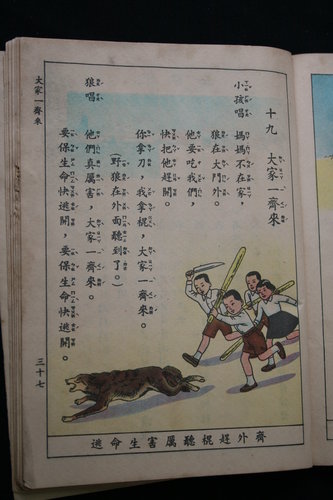 大家一齊來
十九　大家一齊來
小孩唱　媽媽不在家，
狼在大門外。
他要吃我們，
快把他趕開。
你拿刀，我拿棍，大家一齊來。
（野狼在外面聽到了。）
狼唱　他們真厲害，大家一齊來。
要保生命快逃開，要保生命快逃開。
三十七
齊外趕棍聽厲害生命逃